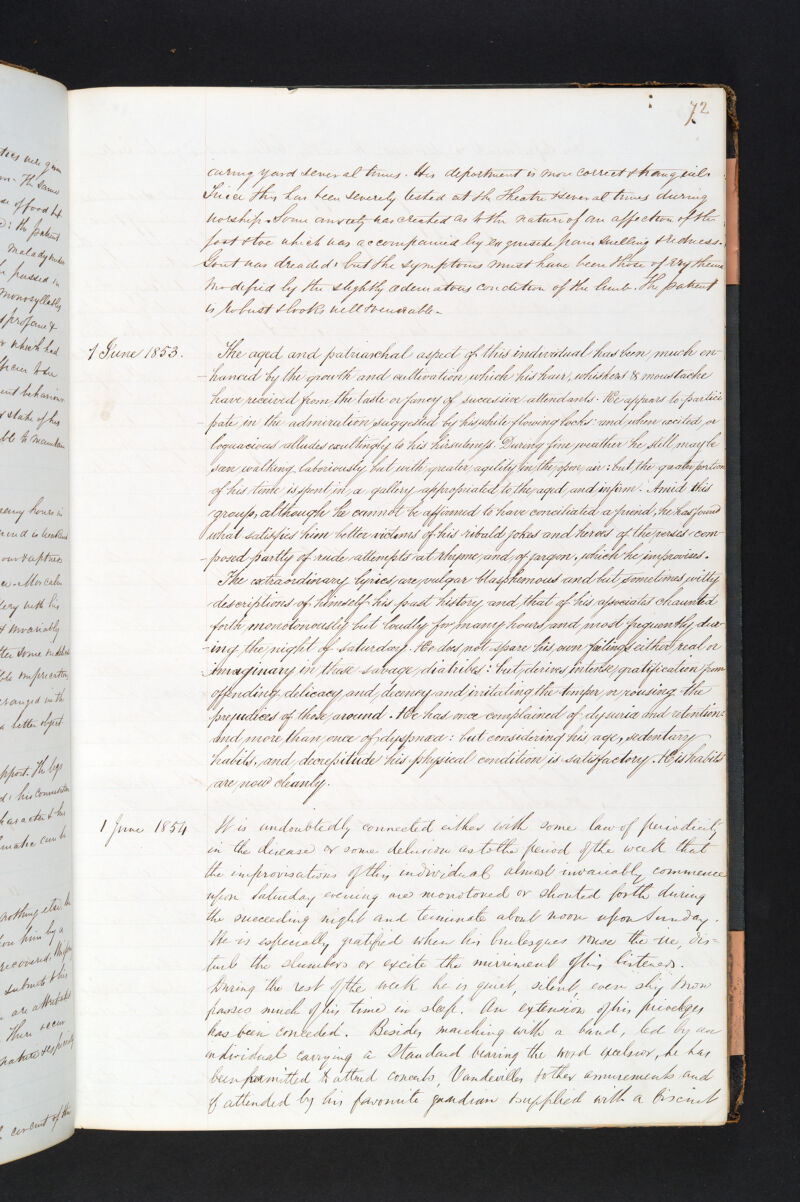 72
airing yard several times. His deportment is more correct & tranquil.
Since this has been severely tested at the Theatre & several times during
worship. Some anxiety was created as to the nature of an affection of the
foot & toe which was accompanied by exquisite pain swelling & redness.
Gout was dreaded: but the symptoms must have been those of Erythema
modified by the slightly œdematous condition of the limb. The patient
is robust & looks well & venerable.
1 June 1853.
The aged and patriarchal aspect of this individual has been much en-
-hanced by the growth and cultivation which his hair, whiskers & moustache
have received from the taste or fancy of successive attendants. He appears to partici
-pate in the admiration suggested by his white flowing locks: and when excited, or
loquacious alludes exultingly to his hirsuteness. During fine weather he still may be
seen walking, laboriously but with greater agility in the open air: but the greater portion
of his time is spent in a gallery appropriated to the aged and infirm. Amid this
group, although he cannot be affirmed to have conciliated a friend, he has found
what satisfies him better victims of his ribald jokes and heroes of the verses com-
-posed partly of rude attempts at rhyme, and of jargon, which he improvises.
The extraordinary lyrics are vulgar blasphemous and but sometimes witty
descriptions of himself his past history and that of his associates chaunted
forth monotonously but loudly for many hours, and most frequently dur-
-ing the night of saturday. He does not spare his own failings either real or
imaginary in these savage diatribes: but derives intense gratification from
offending delicacy and decency and irritating the temper or rousing the
prejudices of those around. He has once complained of dysuria and retention:
and more than once of dyspnœa: but considering his age, sedentary
habits, and decrepitude his physical condition is satisfactory. His habits
are now cleanly.
1 June 1854
It is undoubtedly connected either with some law of periodicity
in the disease or some delusion as to the period of the week that
the improvisations of this individual almost invariably commence
upon Saturday evening are monotoned or shouted forth during
the succeeding night and terminate about noon upon Sunday.
He is especially gratified when his burlesques rouse the ire, dis-
turb the slumbers or excite the merriment of his listeners.
During the rest of the week he is quiet, silent, even shy & now
passes much of his time in sleep. An extension of his privileges
has been conceded. Besides marching with a band, led by an
individual carrying a Standard bearing the word excelsior, he has
been permitted to attend concerts, Vaudevilles & other amusements and
if attended by his favourite guardian & supplied with a biscuit